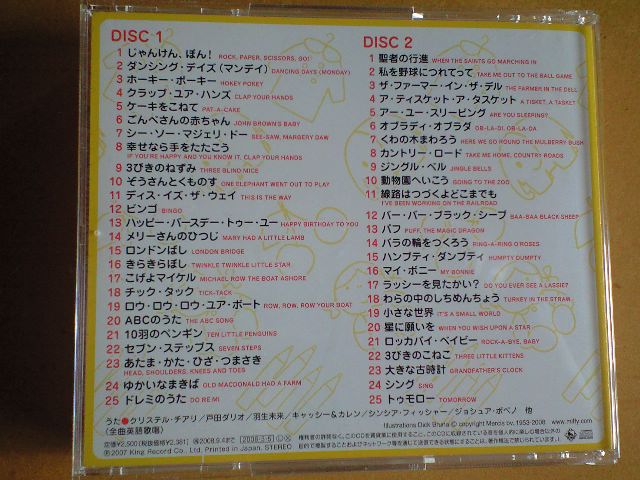 DISC 1
1 じゃんけん、ぽん! ROCK, PAPER, SCISSORS, GO!
2 ダンシング・デイズ(マンデイ) DANCING DAYS (MONDAY)
3 ホーキー・ポーキー HOKEY POKEY
4 クラップ・ユア・ハンズ CLAP YOUR HANDS
5 ケーキをこねて PAT-A-CAKE
6 ごんべさんの赤ちゃん JOHN BROWN'S BABY
7 シー・ソー・マジェリ・ドー SEE-SAW, MARGERY DAW
8 幸せなら手をたたこう
IF YOU'RE HAPPY AND YOU KNOW IT, CLAP YOUR HANDS
9 3びきのねずみ THREE BLIND MICE
10 ぞうさんとくものす ONE ELEPHANT WENT OUT TO PLAY
11 ディス・イズ・ザ・ウェイ THIS IS THE WAY
12 ビンゴ BINGO
13 ハッピー・バースデー・トゥー・ユー HAPPY BIRTHDAY TO YOU
14 メリーさんのひつじ MARY HAD A LITTLE LAMB
15 ロンドンばし LONDON BRIDGE
16 きらきらぼし TWINKLE TWINKLE LITTLE STAR
17 こげよマイケル MICHAEL ROW THE BOAT ASHORE
18 チック・タック TICK-TACK
19 ロウ・ロウ・ロウ・ユア・ボート ROW, ROW, ROW YOUR BOAT
20 ABCのうた THE ABC SONG
21 10羽のペンギン TEN LITTLE PENGUINS
22 セブン・ステップス SEVEN STEPS
23 あたま・かた・ひざ・つまさき
HEAD, SHOULDERS, KNEES AND TOES
24 ゆかいなまきば OLD MACDONALD HAD A FARM
25 ドレミのうた DO RE MI
DISC 2
1 聖者の行進 WHEN THE SAINTS GO MARCHING IN
2 私を野球につれてって TAKE ME OUT TO THE BALL GAME
3 ザ・ファーマー・イン・ザ・デル THE FARMER IN THE DELL
4 ア・ティスケット・ア・タスケット A TISKET, A TASKET
5 アー・ユー・スリーピング ARE YOU SLEEPING?
6 オブラディ・オブラダ OB-LA-DI, OB-LA-DA
7 くわの木まわろう HERE WE GO ROUND THE MULBERRY BUSH
8 カントリー・ロード TAKE ME HOME, COUNTRY ROADS
9 ジングル・ベル JINGLE BELLS
10 動物園へいこう GOING TO THE ZOO
11 線路はつづくよどこまでも
I'VE BEEN WORKING ON THE RAILROAD
12 バー・バー・ブラック・シープ BAA-BAA BLACK SHEEP
13 パフ PUFF, THE MAGIC DRAGON
14 バラの輪をつくろう RING-A-RING O'ROSES
15 ハンプティ・ダンプティ HUMPTY DUMPTY
16 マイ・ボニー MY BONNIE
17 ラッシーを見たかい? DO YOU EVER SEE A LASSIE?
18 わらの中のしちめんちょう TURKEY IN THE STRAW
19 小さな世界 IT'S A SMALL WORLD
20 星に願いを WHEN YOU WISH UPON A STAR
21 ロッカバイ・ベイビー ROCK-A-BYE, BABY
22 3びきのこねこ THREE LITTLE KITTENS
23 大きな古時計 GRANDFATHER'S CLOCK
24 シング SING
25 トゥモロー TOMORROW
うた●クリステル・チアリ/戸田ダリオ/羽生未来/キャッシー&カレン/シンシア・フィッシャー/ジョシュア・ボベノ 他
(全曲英語歌唱)
Illustrations Dick Bruna © copyright Mercis bv, 1953-2008 www.miffy.com
定価¥2,500(税抜価格¥2,381) 2008.9.4まで 2008・3・5
℗2007 King Record Co., Ltd. Printed in Japan. STEREO